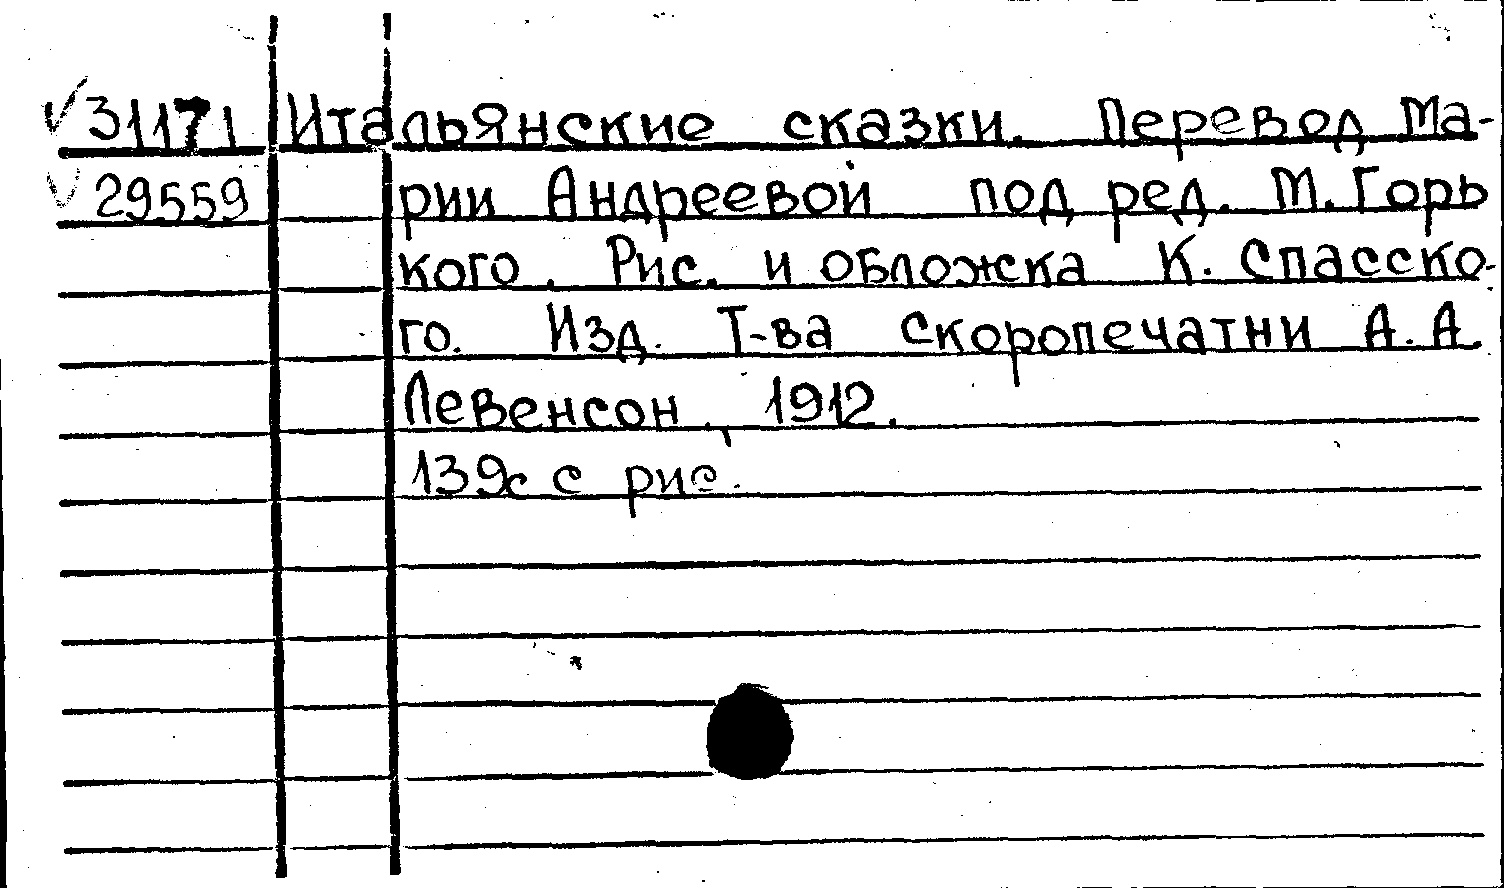 √ 31171 Итальянские сказки. Перевод Ма-
√ 29559 рии Андреевой под ред. М. Горь
кого. Рис. и обложка К. Спасско-
го. Изд. Т-ва Скоропечатни А.А.
Левенсон, 1912.
139с с рис.